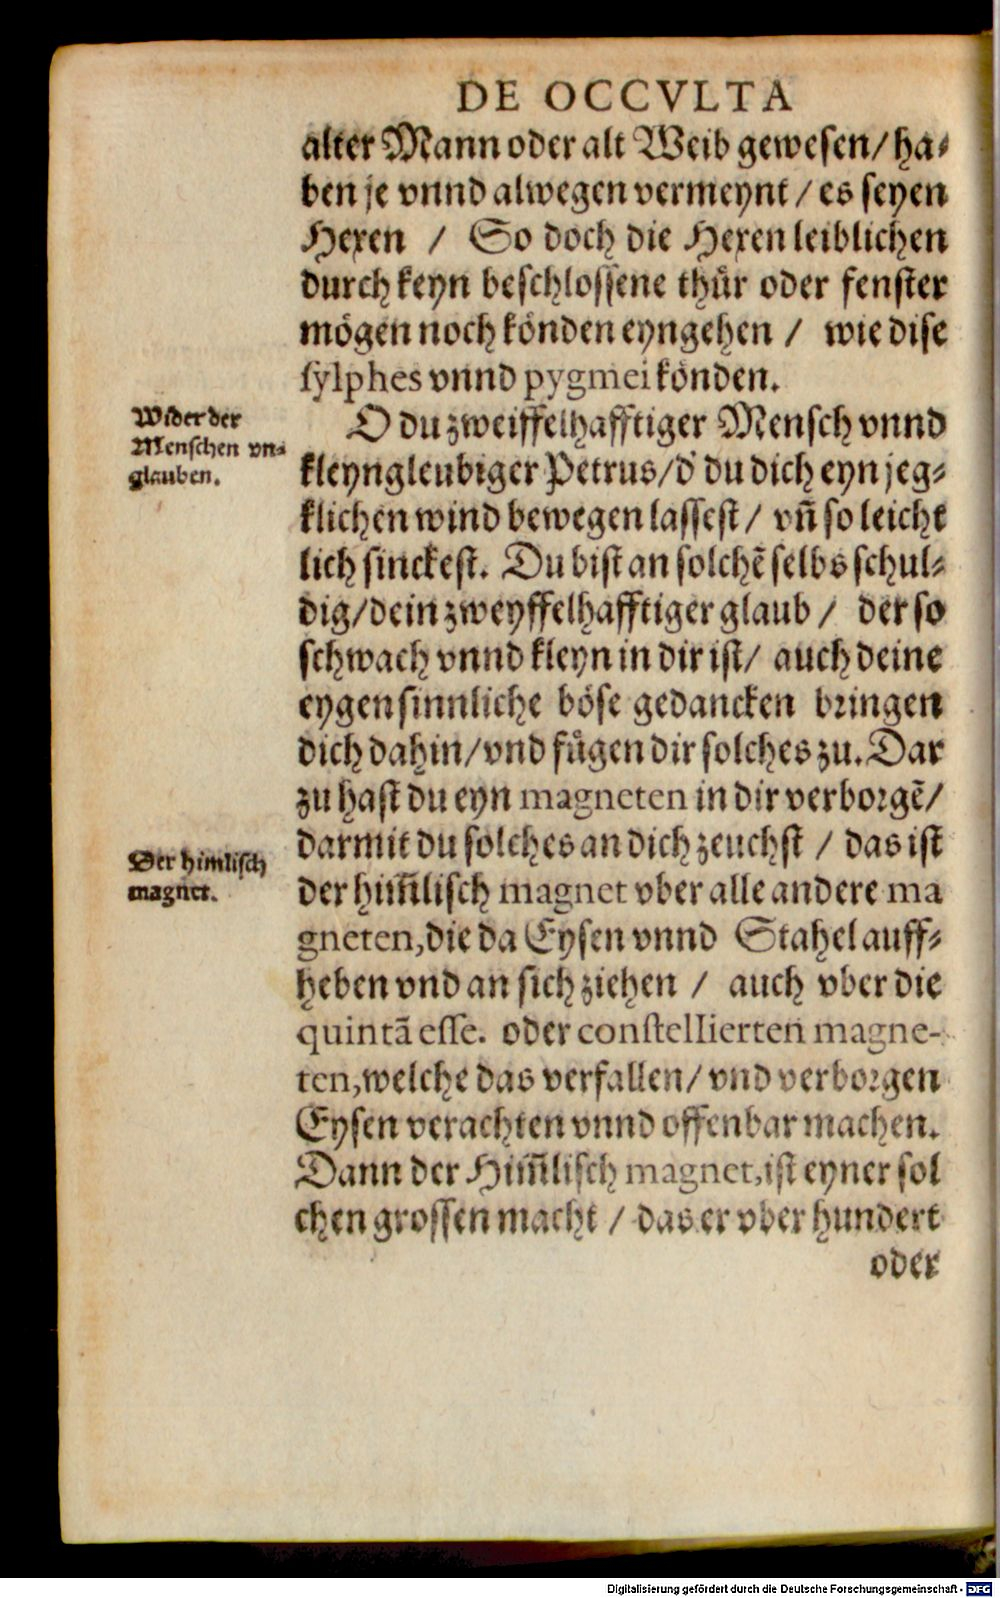 DE OCCVLTA
alter Mann oder alt Weib gewesen/ ha-
ben je vnnd alwegen vermeynt / es seyen
Hexen / So doch die Hexen leiblichen
durch keyn beschlossene thuͤr oder fenster
moͤgen noch koͤnden eyngehen / wie dise
sylphes vnnd pygmei koͤnden.
Wider der
Menschen vn-
glauben.
O du zweiffelhafftiger Mensch vnnd
kleyngleubiger Petrus/ d' du dich eyn jeg-
klichen wind bewegen lassest / vn̄ so leicht
lich sinckest. Du bist an solchē selbs schul-
dig/ dein zweyffelhafftiger glaub / der so
schwach vnnd kleyn in dir ist/ auch deine
eygensinnliche boͤse gedancken bringen
dich dahin/ vnd fuͤgen dir solches zu. Dar
zu hast du eyn magneten in dir verborgē/
Der himlisch
magnet.
darmit du solches an dich zeuchst / das ist
der him̄lisch magnet vber alle andere ma
gneten, die da Eysen vnnd Stahel auff-
heben vnd an sich ziehen / auch vber die
quintā esse. oder constellierten magne-
ten, welche das verfallen/ vnd verborgen
Eysen verachten vnnd offenbar machen.
Dann der Him̄lisch magnet, ist eyner sol
chen grossen macht / das er vber hundert
oder
Digitalisierung gefördert durch die Deutsche Forschungsgemeinschaft - DFG